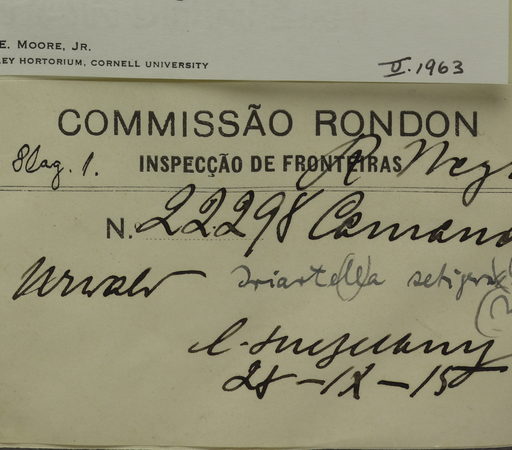 E. MOORE, JR.
EY HORTORIUM, CORNELL UNIVERSITY
II.1963
COMMISSÃO RONDON
INSPECÇÃO DE FRONTEIRAS
R. Neg
N. 22298 Caman
Urwald Iriartella setigera
28-IX-15